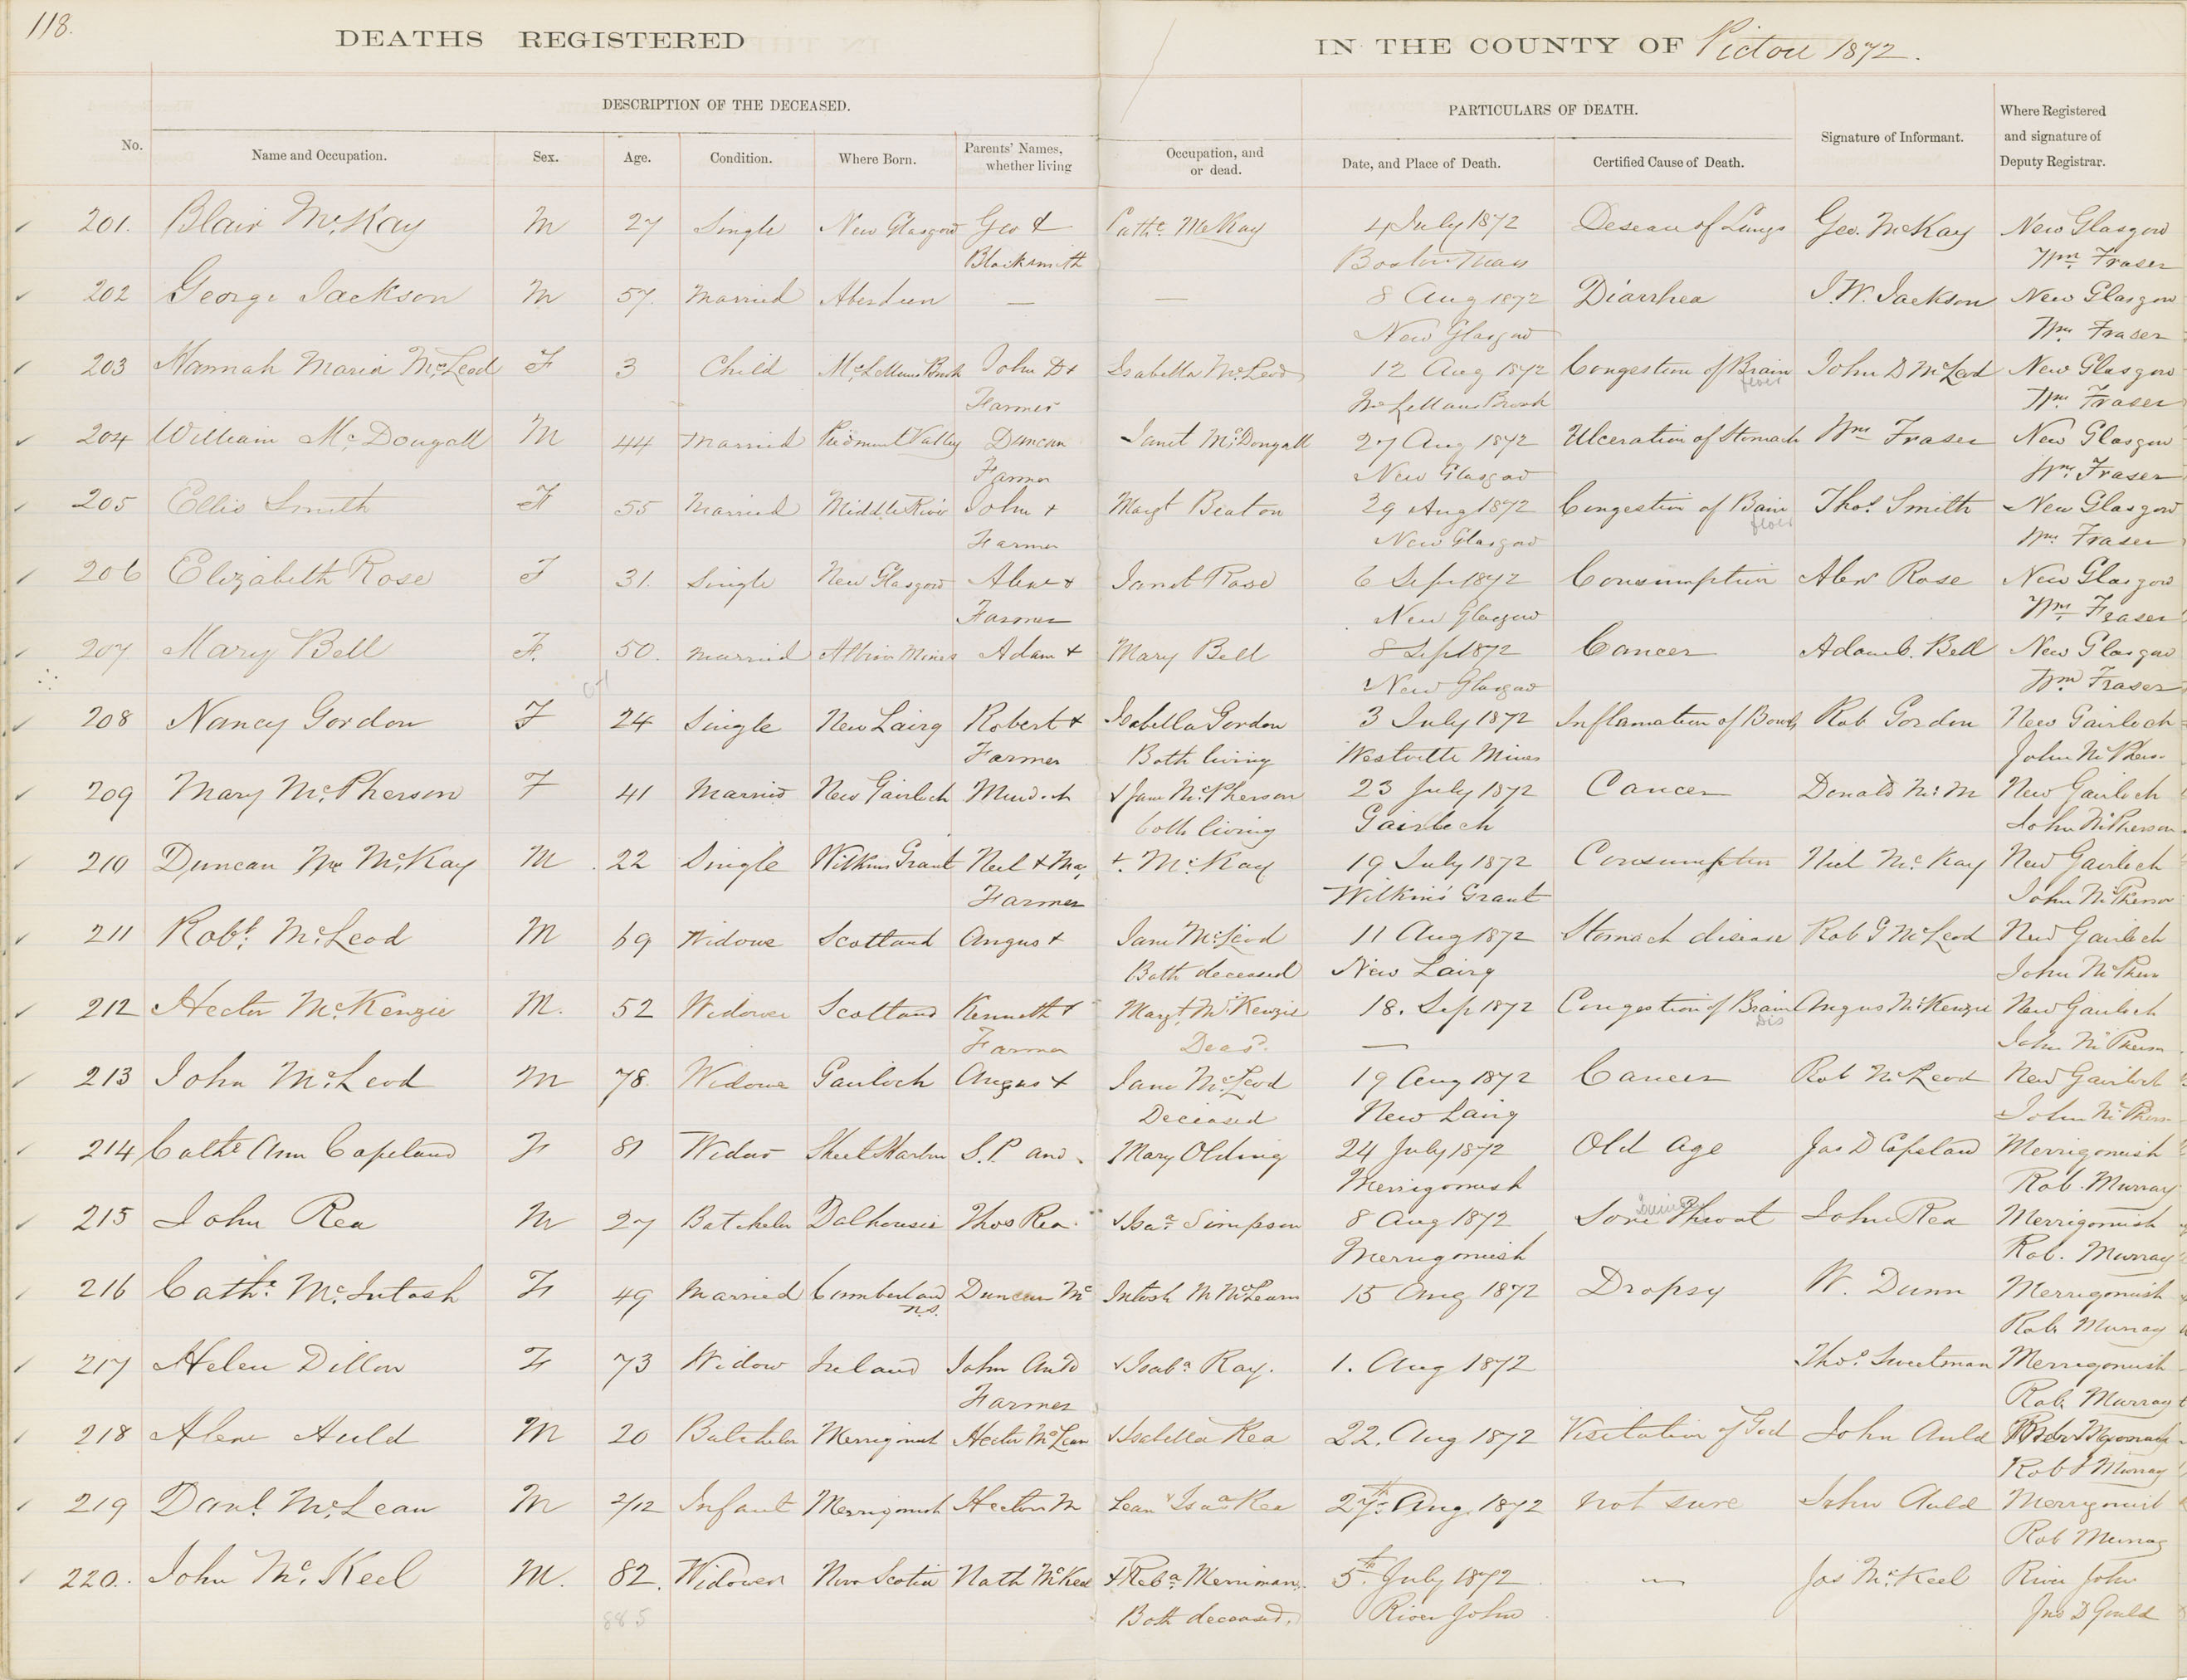 118.
DEATHS REGISTERED IN THE COUNTY OF Pictou 1872.
DESCRIPTION OF THE DECEASED. PARTICULARS OF DEATH.
No. Name and Occupation. Sex. Age. Condition. Where Born. Parents' Names, whether living Occupation, and or dead. Date, and Place of Death. Certified Cause of Death. Signature of Informant. Where Registered and signature of Deputy Registrar.
201. Blair McKay M 27 Single New Glasgow Geo & Cathe McKay 4 July 1872 Deseau of Lungs Geo. McKay New Glasgow
Blacksmith Boston Mass Wm Fraser
202 George Jackson M 57. Married Aberdeen — — 8 Aug 1872 Diarrhea J. W. Jackson New Glasgow
New Glasgow Wm Fraser
203 Hannah Maria McLeod F 3 Child McLellans Brook John D & Isabella McLeod 12 Aug 1872 Congestion of Brain John D McLeod New Glasgow
Farmer McLellans Brook fever Wm Fraser
204 William McDougall M 44 Married Piedmont Valley Duncan Janet McDougall 27 Aug 1872 Ulceration of Stomach Wm Fraser New Glasgow
Farmer New Glasgow Wm Fraser
205 Ellis Smith F 55 Married Middle River John & Margt Beaton 29 Aug 1872 Congestion of Bain Thos. Smith New Glasgow
Farmer New Glasgow fever Wm Fraser
206 Elizabeth Rose F 31. Single New Glasgow Alexr & Janet Rose 6 Sep 1872 Consumption Alexr Rose New Glasgow
Farmer New Glasgow Wm Fraser
207 Mary Bell F. 50. Married Albion Mines Adam & Mary Bell 8 Sep 1872 Cancer Adam C. Bell New Glasgow
New Glasgow Wm Fraser
208 Nancy Gordon F 24 Single New Lairg Robert & Isabella Gordon 3 July 1872 Inflamation of Bowels Rob Gordon New Gairloch
Farmer Both living Westville Mines John McPhers.
209 Mary McPherson F 41 Married New Gairloch Murdoch & Jane McPherson 23 July 1872 Cancer Donald McM New Gairloch
both living Gairloch John McPherson
210 Duncan Wm McKay M 22 Single Wilkins Grant Neil & Mar t. McKay 19 July 1872 Consumption Niel McKay New Gairloch
Farmer Wilkins Grant John McPherson
211 Robt. McLeod M 69 Widowe Scotland Angus & Jane McLeod 11 Aug 1872 Stomach disease Rob G McLeod New Gairloch
Both deceased New Lairg John McPhers
212 Hector McKenzie M. 52 Widower Scotland Kenneth & Margt McKenzie 18. Sep 1872 Congestion of Brain Angus McKenzie New Gairloch
Farmer Deasd. — Dis John McPherson
213 John McLeod M 78. Widowe Gairloch Angus & Jane McLeod 19 Aug 1872 Cancer Rob McLeod New Gairloch
Deceased New Lairg John McPhers
214 Cathe Ann Copeland F 81 Widow Sheet Harbor S. P. and Mary Olding 24 July 1872 Old age Jas D Copeland Merrigomish
Merrigomish Rob. Murray
215 John Rea M 27 Batcheler Dalhousie Thos Rea & Isaa Simpson 8 Aug 1872 Sore Throat John Rea Merrigomish
Merrigomish Rob. Murray
216 Cathe. McIntosh F 49 Married Cumberland N.S. Duncan Mc Intosh M McLearn 15 Aug 1872 Dropsy W. Dunn Merrigomish
Rob Murray
217 Helen Dillon F 73 Widow Ireland John and & Isaba Ray. 1. Aug 1872 Thos. Sweetman Merrigomish
Farmer Rob Murray
218 Alexr Auld M 20 Batcheler Merrigomish Hector McLean & Isabella Rea 22. Aug 1872 Visitation of God John Auld
Rob Murray
219 Danl. McLean M 2/12 Infant Merrigomish Hector M Lean & Isaa Rea 27th Aug. 1872 not sure John Auld Merrigomish
Rob Murray
220. John McKeel M. 82. Widower Nova Scotia Nath McKeel & Reba Merriman. 5th July 1872 — Jas McKeel River John
885 Both deceased. River John Jno D Gould